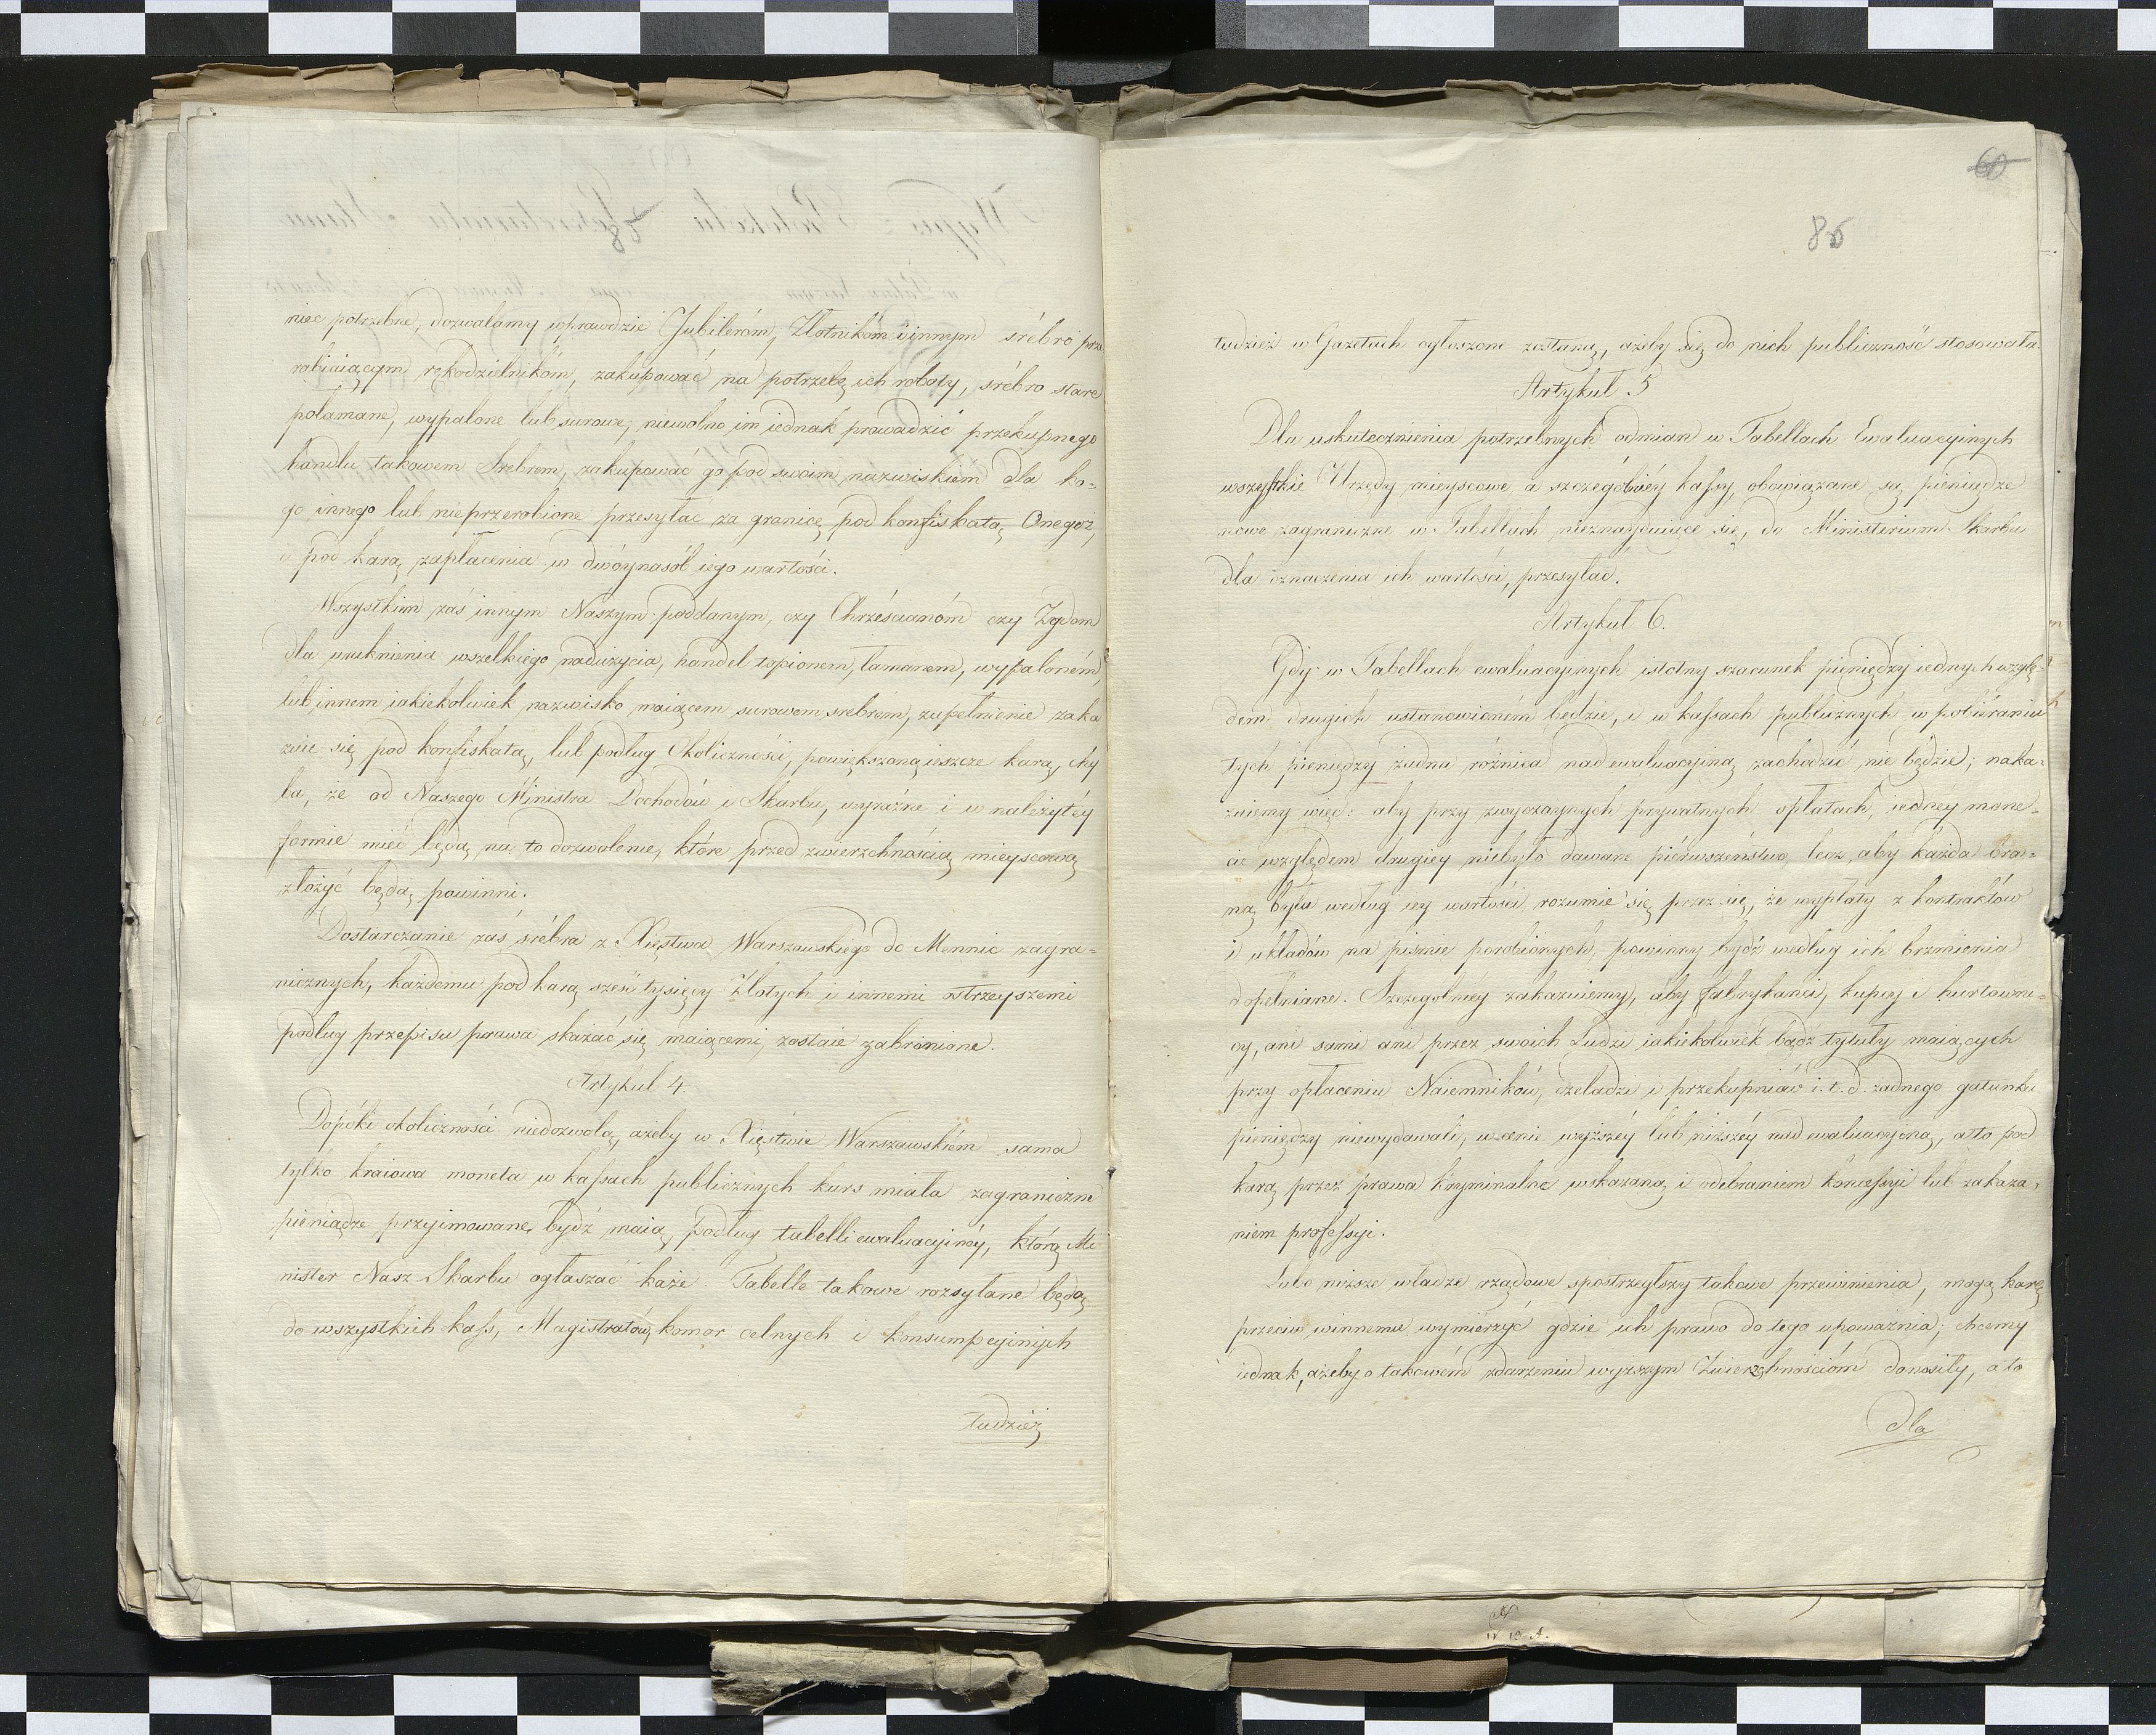 niec potrzebne, dozwalamy wprawdzie Jubilerom, Złotnikóm i innym srébro prze
rabiaiącym rękodzielnikóm, zakupować na potrzebę ich roboty, srébro stare
połamane, wypalone lub surowe, niewolno im iednak prowadzić przekupnego
handlu takowem Srebrem, zakupować go pod swoim nazwiskiem dla ko=
go innego lub nieprzerobione przesyłac za granicę pod konfiskatą Onegoż,
i pod karą zapłacenia w dwóynasób iego wartości.
Wszystkim zaś innym Naszym poddanym, czy Chrześcianóm czy Żydom
dla uniknienia wszelkiego nadużycia, handel topionem, łamanem, wypaloném,
lub innem iakiekolwiek nazwisko maiącem surowem srebrem, zupełnienie zaka
zuie się pod konfiskatą, lub podług Okoliczności, powiększoną ieszcze karą, chy
ba, że od Naszego Ministra Dochodów i Skarbu, wyraźne i w należytéy
formie mieć będą na to dozwolenie, które przed zwierzchnością mieyscową
złożyć będą powinni.
Dostarczanie zaś srébra z Xięstwa Warszawskiego do Mennic zagra=
nicznych, każdemu pod karą sześć tysięcy Złotych i innemi ostrzeyszemi
podług przepisu prawa skazać się maiącemi, zostaie zabronione.
Artykuł 4.
Dopóki okoliczności niedozwolą, ażeby w Xięstwie Warszawskiém sama
tylko kraiowa moneta w kassach publicznych kurs miała zagraniczne
pieniądze przyimowane bydź maią podług tabelli ewaluacyinéy, którą Mi
nister Nasz Skarbu ogłaszać każe. Tabelle takowe rozsyłane będą
do wszystkich kass, Magistratów, komor celnych i konsumpcyinych
tudzież
60
85
tudzież w Gazetach ogłoszone zostaną, ażeby się do nich publiczność stosowała.
Artykuł 5
Dla uskutecznienia potrzebnych odmian w Tabellach Ewaluacyinych
wszystkie Urzędy mieyscowe a szczególniéy kassy, obowiązane są pieniądze
nowe zagraniczne w Tabellach nieznayduiące się, do Ministerium Skarbu
dla oznaczenia ich wartości, przesyłać.
Artykuł 6.
Gdy w Tabellach ewaluacyinych istotny szacunek pieniędzy iednych wzglę=
dem drugich ustanowioném będzie, i w kassach publicznych w pobiéraniu
tych pieniędzy żadna różnica nad ewaluacyiną zachodzić nie będzie; naka=
zuiemy więc: aby przy zwyczaynych prywatnych opłatach, iednéy mone=
cie względem drugiey niebyło dawane piérwszeństwo, lecz aby każda bra=
ną była według iey wartości rozumie się przez się, że wypłaty z kontraktów
i układów na piśmie porobionych, powinny bydź według ich brzmienia
dopełniane. Szczególniéy zakazuiemy, aby fabrykanci, kupcy i hurtowni=
cy, ani sami ani przez swoich Ludzi iakiekolwiek bądź tytuły maiących
przy opłaceniu Naiemników, czeladzi i przekupniów i.t.d. żadnego gatunku
pieniędzy niewydawali, w cenie wyższéy lub niższéy nad ewaluacyiną, a to pod
karą przez prawa kryminalne wskazaną i odebraniem koncessyi lub zakaza=
niem professyi.
Lubo niższe władze rządowe spostrzegłszy takowe przewinienia, mogą karę
przeciw winnemu wymierzyć gdzie ich prawo do tego upoważnia; chcemy
iednak, ażeby o takowém zdarzeniu wyższym Zwierzchnościóm donosiły, a to
dla